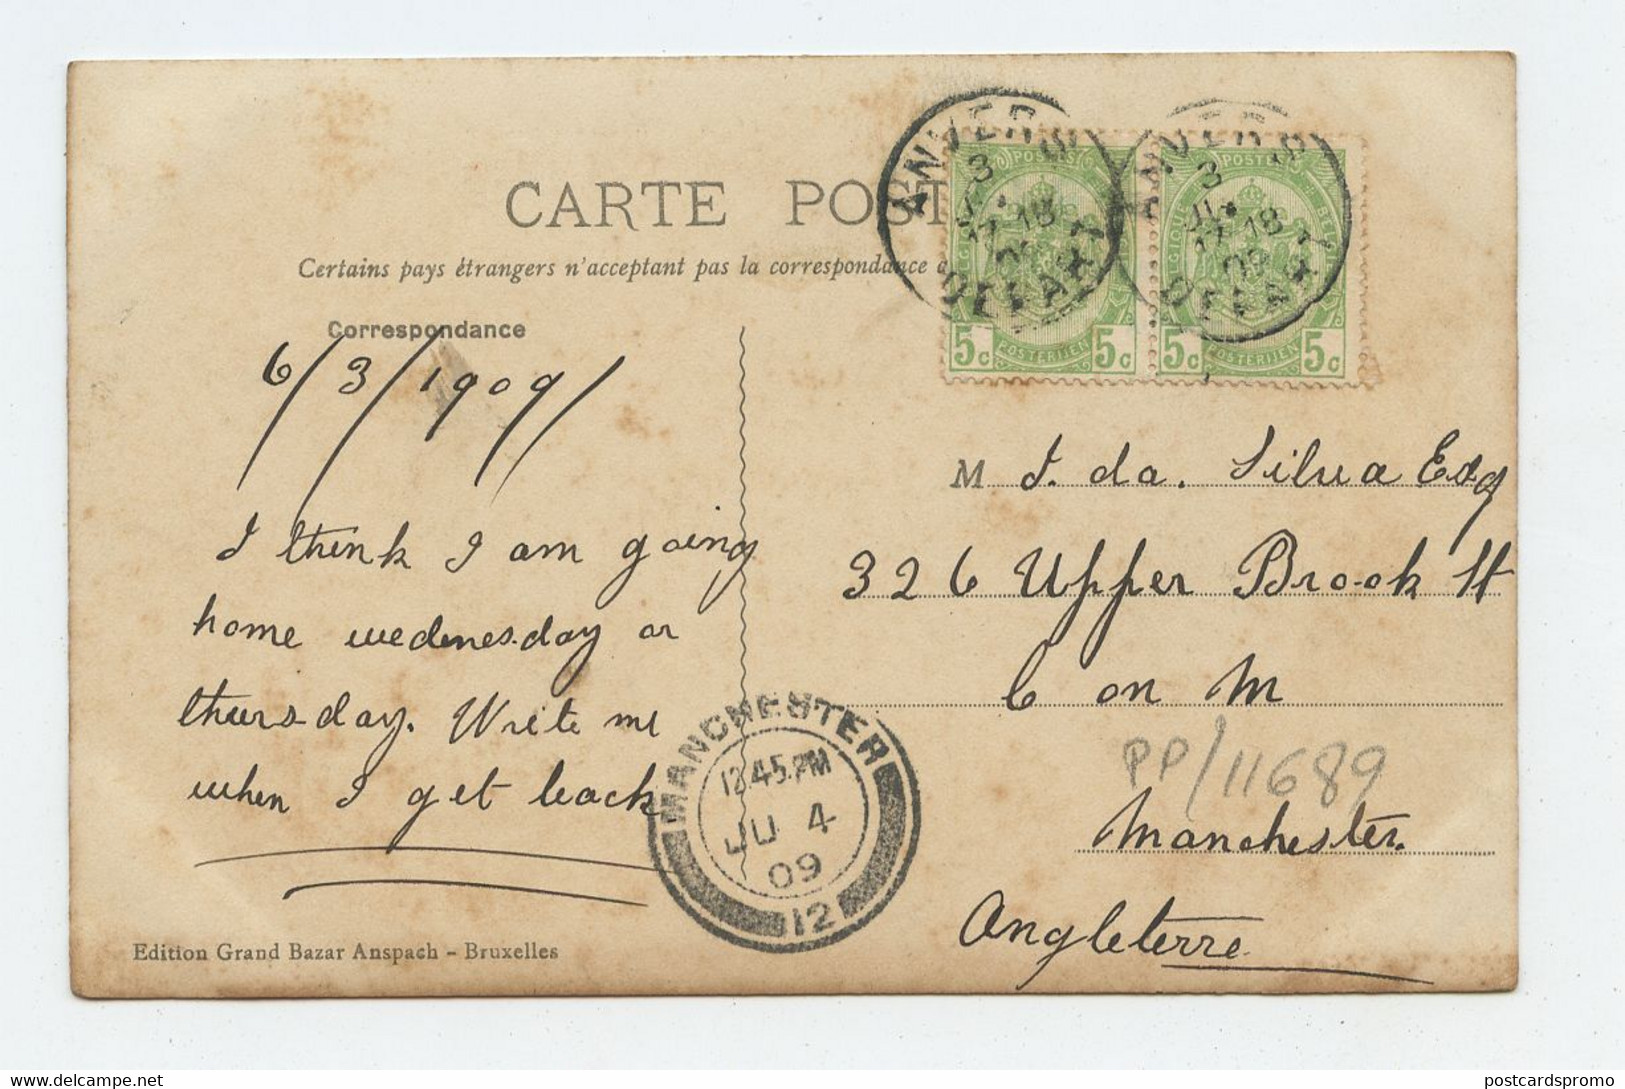 CARTE POST
Certains pays étrangers n'acceptant pas la correspondance a
ANVERS
3
17-18
09
DEPART
ANVERS
3
JUI
17-18
09
DEPART
POSTES
BELGIQUE
5c POSTERIJEN 5c
POSTES
BELGIQUE
5c POSTERIJEN 5c
Correspondance
6/3/1909/
I think I am going
home wedenesday or
thursday. Write me
when I get back
M J. da. Silva Esq
326 Upper Brook St
C on M
PP/11689
Manchester.
Angleterre
MANCHESTER
12.45.PM
JU 4
09
12
Edition Grand Bazar Anspach - Bruxelles
postcardspromo